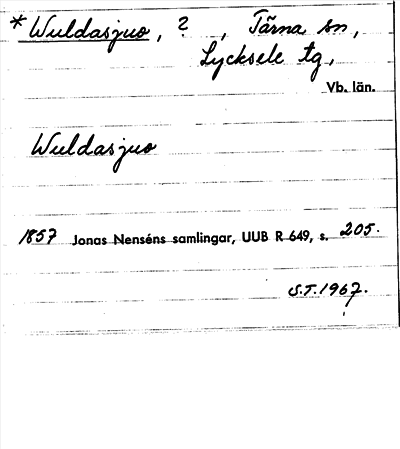 * Wuldasjuo, ?, Tärna sn,
Lycksele tg,
Vb. län.
Wuldasjuo
1857 Jonas Nenséns samlingar, UUB R 649, s. 205.
S.T. 1967.